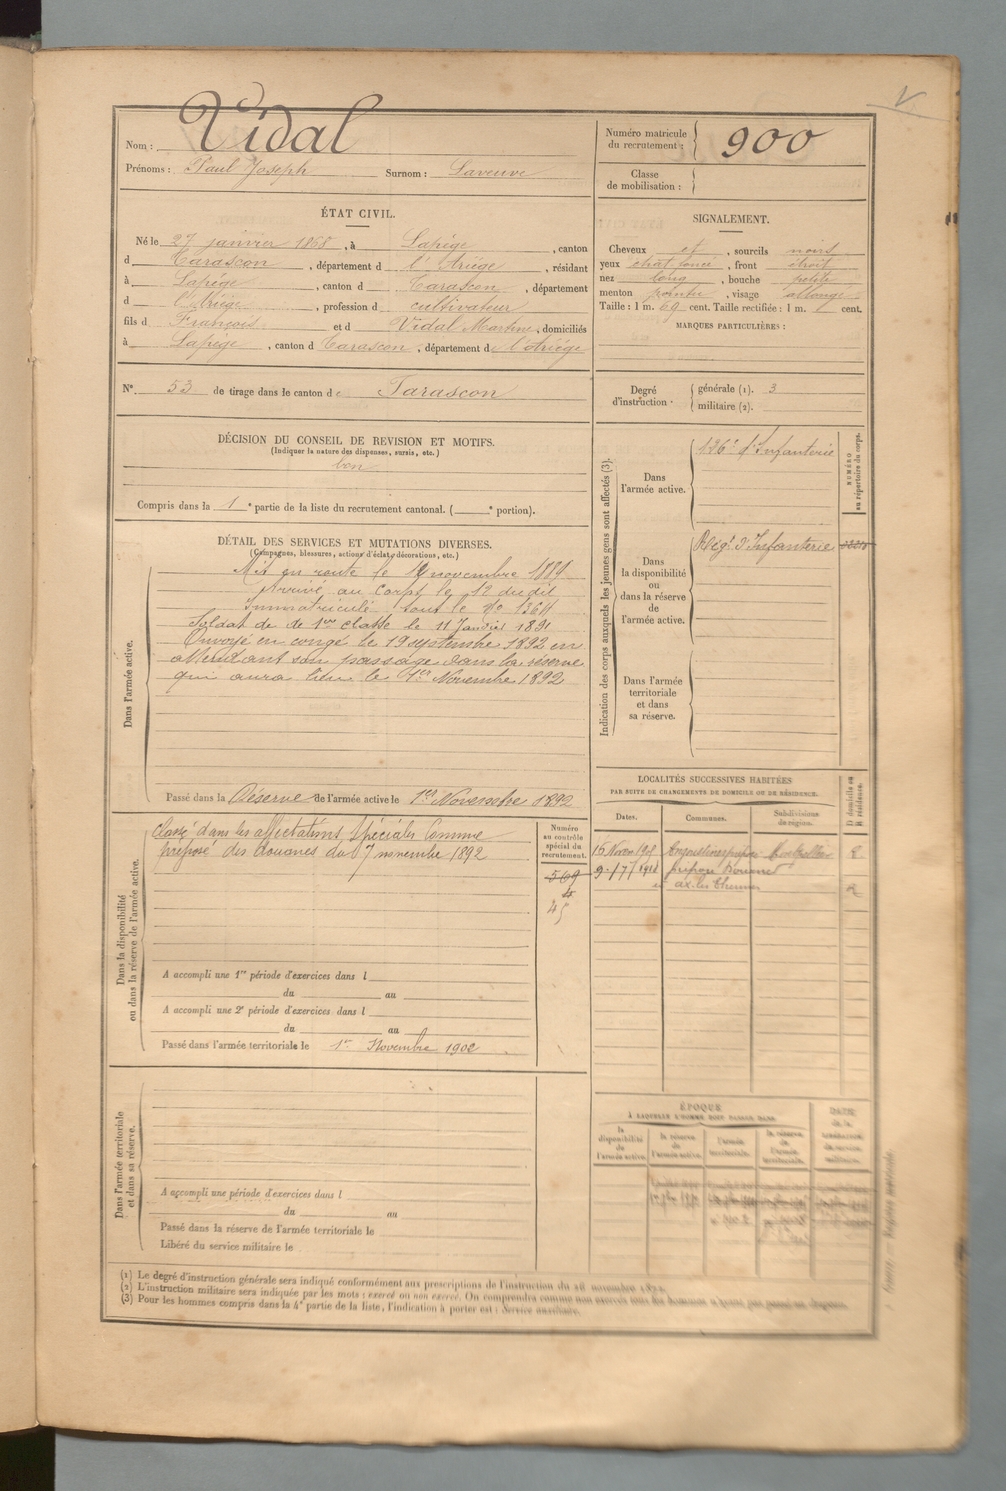 Nom : Vidal
Prénoms : Paul Joseph Surnom : Laveuve
Numéro matricule du recrutement : 900
Classe de mobilisation :
ÉTAT CIVIL.
Né le 27 janvier 1868, à Lapège, canton
d Tarascon, département d l'Ariège, résidant
à Lapège, canton d Tarascon, département
d l'Ariège, profession d cultivateur
fils d François et d Vidal Martine, domiciliés
à Lapège, canton d Tarascon, département de l'Ariège
SIGNALEMENT.
Cheveux et, sourcils noirs
yeux chat foncé, front étroit
nez long, bouche petite
menton pointu, visage allongé
Taille : 1 m. 69 cent. Taille rectifiée : 1 m. cent.
MARQUES PARTICULIÈRES :
N° 53 de tirage dans le canton de Tarascon
Degré d'instruction. générale (1). 3
militaire (2).
DÉCISION DU CONSEIL DE REVISION ET MOTIFS.
(Indiquer la nature des dispenses, sursis, etc.)
bon
Compris dans la 1e partie de la liste du recrutement cantonal. ( e portion).
DÉTAIL DES SERVICES ET MUTATIONS DIVERSES.
(Campagnes, blessures, actions d'éclat, décorations, etc.)
Dans l'armée active.
Mis en route le novembre 1889
Arrivé au corps le 12 du dit
Immatriculé sous le No
Soldat de de 1re classe le 11 Janvier 1891
Envoyé en congé le 19 septembre 1892 en
attendant son passage dans la réserve
qui aura lieu le 1er Novembre 1892
Passé dans la Réserve de l'armée active le 1er Novembre 1892
Indication des corps auxquels les jeunes gens sont affectés (3).
NUMÉRO au répertoire du corps.
Dans l'armée active.
126e d'Infanterie
Dans la disponibilité ou dans la réserve de l'armée active.
Régt d'Infanterie
Dans l'armée territoriale et dans sa réserve.
Dans la disponibilité ou dans la réserve de l'armée active.
Classé dans les affectations Spéciales Comme
préposé des douanes du 7 novembre 1892
Numéro au contrôle spécial du recrutement.
569
45
A accompli une 1re période d'exercices dans l
du au
A accompli une 2e période d'exercices dans l
du au
Passé dans l'armée territoriale le 1er Novembre 1902
LOCALITÉS SUCCESSIVES HABITÉES
PAR SUITE DE CHANGEMENTS DE DOMICILE OU DE RÉSIDENCE.
D domicile ou R résidence.
Dates. Communes. Subdivisions de région.
Montpellier R
ax les Thermes R
Dans l'armée territoriale et dans sa réserve.
A accompli une période d'exercices dans l
du au
Passé dans la réserve de l'armée territoriale le
Libéré du service militaire le
ÉPOQUE
À LAQUELLE L'HOMME DOIT PASSER DANS
la disponibilité de l'armée active.
la réserve de l'armée active.
l'armée territoriale.
la réserve de l'armée territoriale.
DATE de la libération du service militaire.
(1) Le degré d'instruction générale sera indiqué conformément aux prescriptions de l'instruction du 28 novembre 1872.
(2) L'instruction militaire sera indiquée par les mots : exercé ou non exercé. On comprendra comme non exercés tous les hommes n'ayant pas passé au drapeau.
(3) Pour les hommes compris dans la 4e partie de la liste, l'indication à porter est : Service auxiliaire.